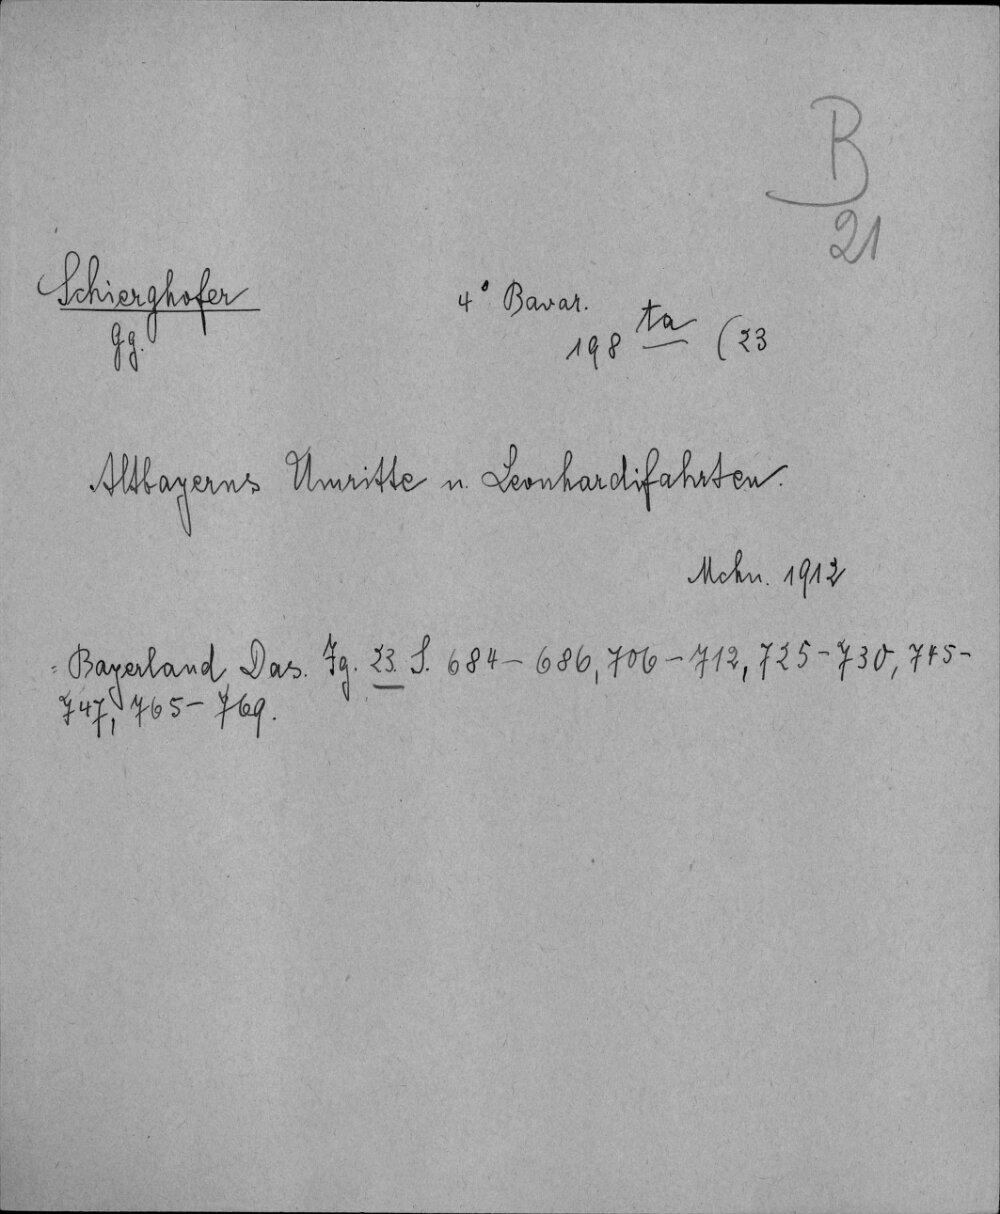 B
21
Schierghofer
Gg.
4° Bavar.
198 ta (23
Altbayerns Umritte u. Leonhardifahrten.
Mchn. 1912
= Bayerland Das. Jg. 23. S. 684-686, 706-712, 725-730, 745-
747, 765-769.